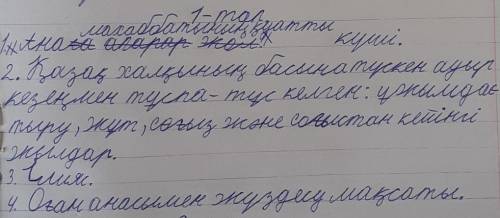 1-топ.
махаббатының құдіретті
1. Ана күші.
2. Қазақ халқының басына түскен ауыр
кезеңмен тұспа-тұс келген: ұжымдас
тыру, жұт, соғыс және соғыстан кетінгі
жылдар.
3. Ілияс.
4. Оған анасымен жүздесу мақсаты.